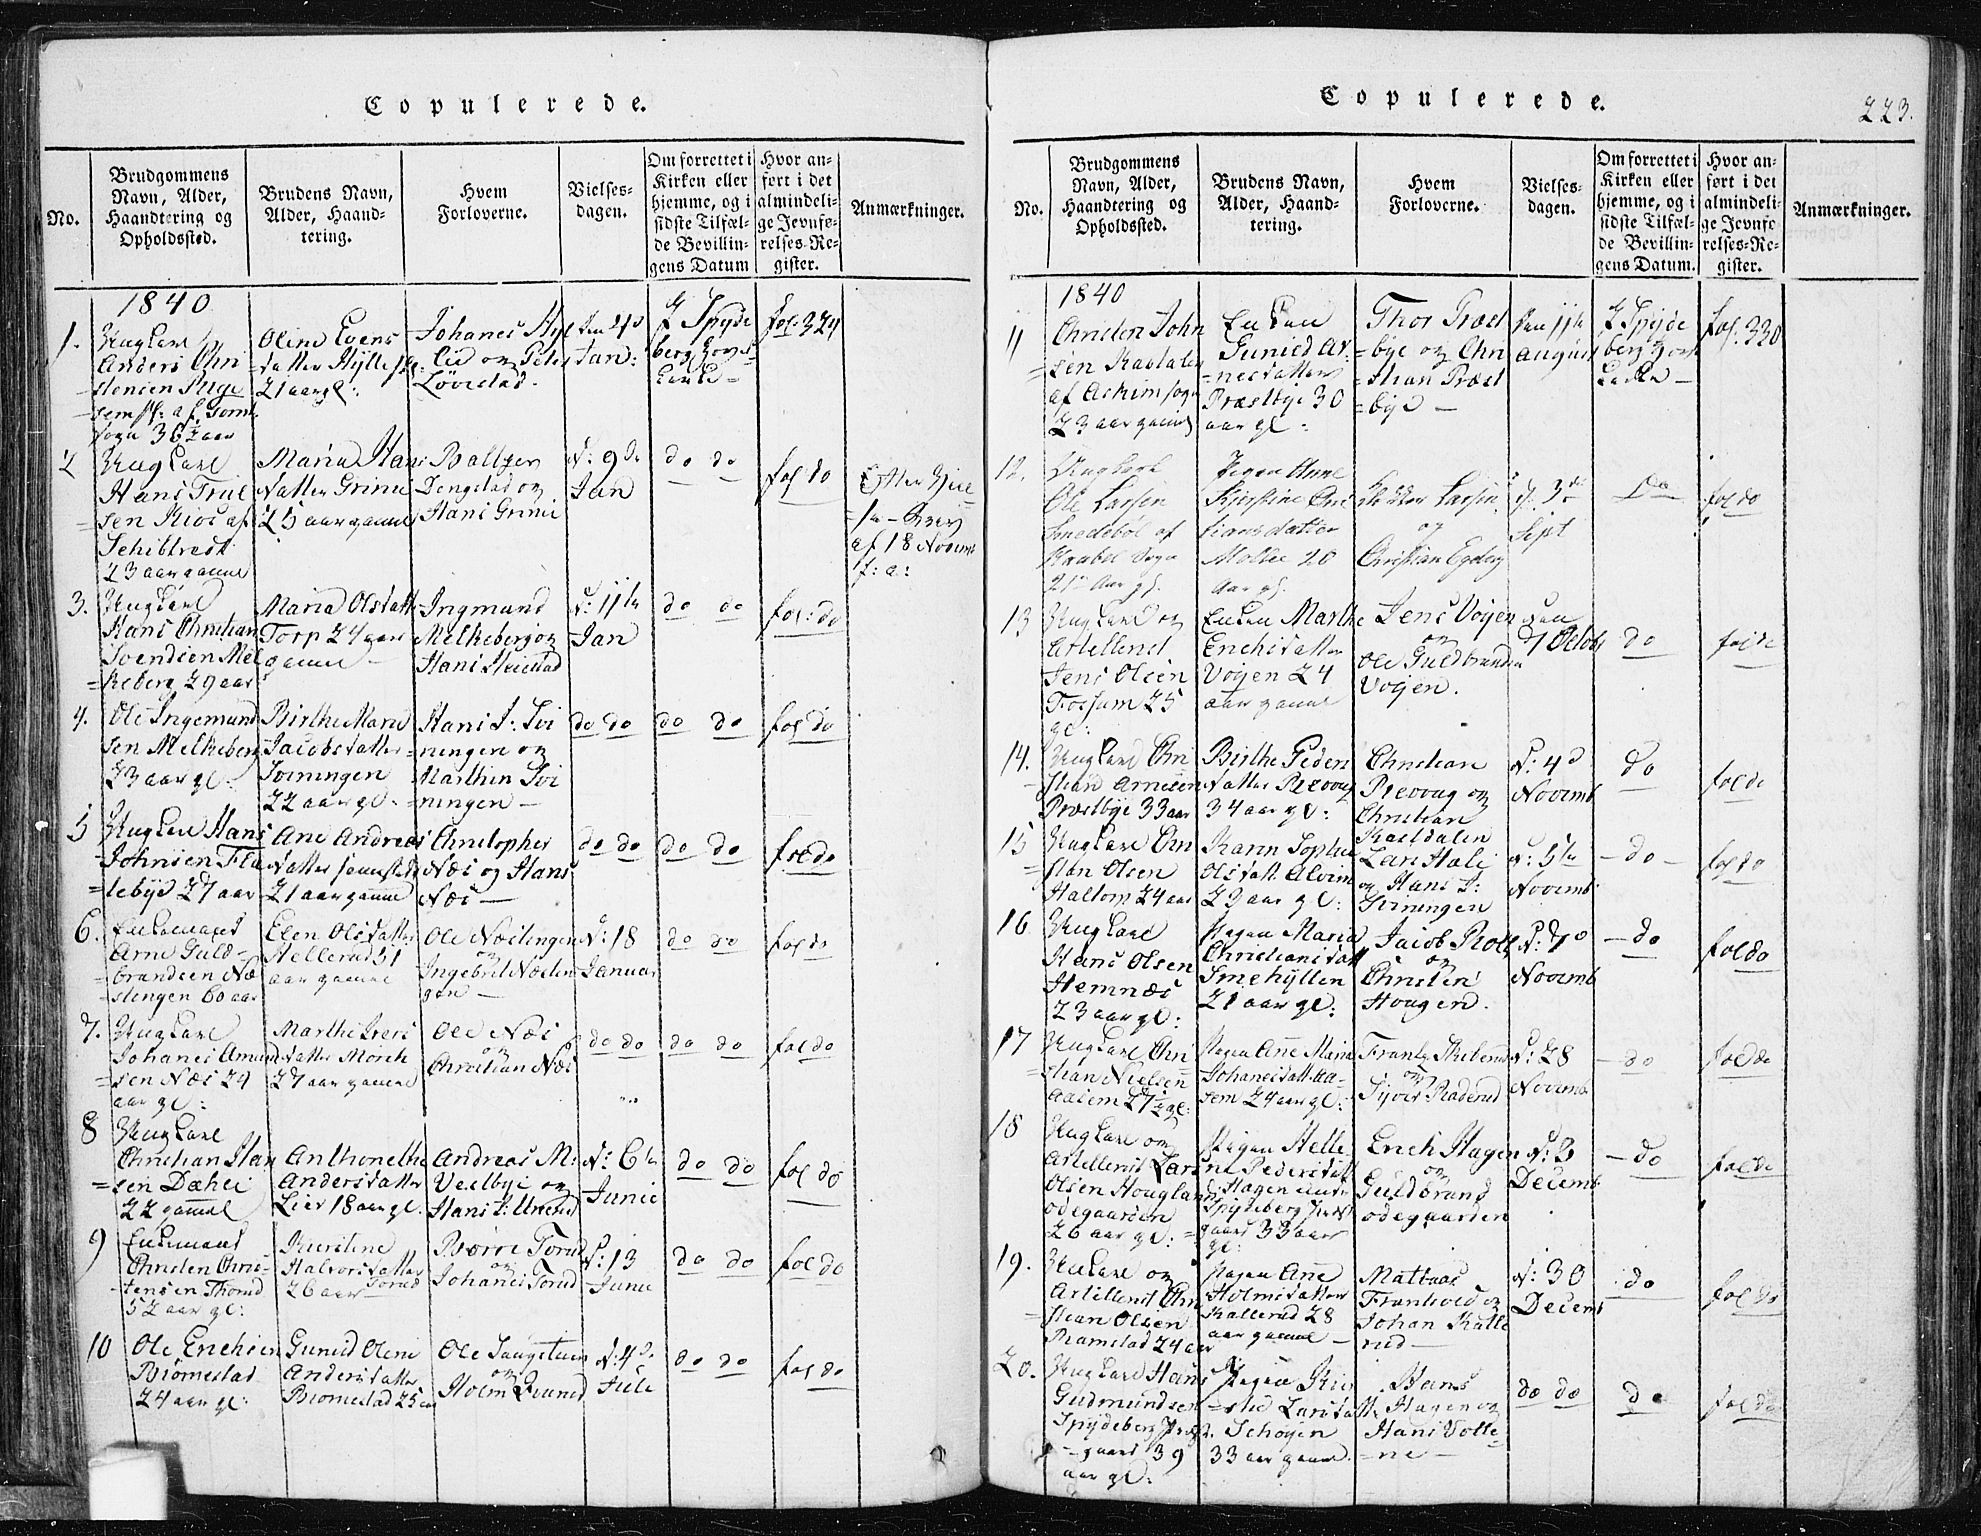 Copulerede.
No.
Brudgommens
Navn, Alder,
Haandtering og
Opholdssted.
Brudens Navn,
Alder, Haand-
tering.
Hvem
Forloverne.
Vielses-
dagen.
Om forrettet i
Kirken eller
hjemme, og i
sidste Tilfæl-
de Bevillin-
gens Datum
Hvor an-
ført i det
almindeli-
ge Jevnfø-
relses-Re-
gister.
Anmærkninger.
1840
1.
Ung Karl
Anders Chri
stensen
36½ aar
Oline Evens
datter
21 aar gl:
Johanes
og Peter
Løvestad.
Jan:
Spyde
berg Hoved
Kirke
fol. 324
2
Ung Karl
Hans Trul
sen Kios af
23 aar gamle
Maria Hans
datter Grimi
25 aar gamle
og
Hans Grimi
d: 9de
Jan
do do
fol do
af 18 Novemb
f: a:
3.
Ung Karl
Hans Christian
Svendsen Mel
keberg 29 aar
Maria Olsdatt
Torp 24 aar
gamle
Ingmund
Melkeberg og
Hans
d: 11te
Jan
do do
fol: do
4.
Ole Ingemund
sen Melkeberg
23 aar gl.
Birthe Marie
Jacobsdatter
Sviningen
22 aar gl.
Hans J: Svi
ningen og
Marthin Svi
ningen
do do
do do
fol do
5
Ung Karl Hans
Johnsen Fla
tebye 27 aar
Ane Andreas
datter
21 aar gamle
Christopher
Næs og Hans
Næs
do do
do do
fol do
6.
Enkemand
Arne Guld-
brandsen Næ
stengen 60 aar
Elen Olsdatter
Hellerud 51
aar gamle
Ole Næstengen
og
Ingebret Næsten
gen
d: 18
Januar
do do
fol do
7.
Ung Karl
Johanes Amund
sen Næs 24
aar gl:
Marthe Ivers
datter Morck
27 aar gamle
Ole Næs
og
Christian Næs
do do
do do
fol do
8
Ung Karl
Christian Han
sen Dæhei
22 gammel
Anthonethe
Andersdatter
Lier 18 aar gl.
Andreas M:
Veelbye og
Hans J:
d: 6te
Junie
do do
fol do
9
Enkemand
Christen Chri-
stensen Thorud
52 aar gl:
Kierstine
Halvorsdatter
26 aar Torud
Børre Torud
og
Johanes Torud
d: 13
Junie
do do
fol do
10
Ole Erichsen
Brømestad
24 aar gl:
Gunild Oline
Andersdatter
Bromestad 25 aar
Ole
og
Holm
d: 4de
Jule
do do
fol do
Copulerede.
223.
No.
Brudgommens
Navn, Alder,
Haandtering og
Opholdssted.
Brudens Navn,
Alder, Haand-
tering.
Hvem
Forloverne.
Vielses-
dagen.
Om forrettet i
Kirken eller
hjemme, og i
sidste Tilfæl-
de Bevillin-
gens Datum.
Hvor an-
ført i det
almindeli-
ge Jevnfø-
relses-Re-
gister.
Anmærkninger.
1840
11
Christen John
sen
af Askim sogn
23 aar gamel
Enken
Gunild Ar-
nesdatter
Præstbye 30
aar gl:
Thor Præst
bye og Chri
stian Præst
bye
den 11te
August
Spyde
berg Hoved
Kirke
fol. 330
12.
Ungkarl
Ole Larsen
Smedsbøl af
Sogn
Aar gl.
Pigen Anne
Kirstine Chri
stiansdatter
20
Aar gl.
Larsen
og
Christian
d. 3de
Sept
do
fol do
13
Ung Karl og
Artillerist
Jens Olsen
Fossum 25
gl:
Enken Marthe
Erichsdatter
Vøyen 24
aar gamle
Jens Vøyen
og
Ole Guldbrandsen
Vøyen.
den
7 Octobr
do
fol do
14.
Ung Karl Chri
stian Arnesen
Præstbye 33 aar
Birthe Peders
datter Revoug
34 aar gl:
Christian
Revoug og
Christian
Kasldalen
d: 4de
Novemb
do
fol do
15
Ung Karl Chri
stian Olsen
Haltom 24 aar
Karin Sophie
Olsdatt
23 aar gl:
Lars Hale
og Hans J:
Sviningen
d: 5te
Novemb:
do
fol do
16
Ung Karl
Hans Olsen
Hemnæs
23 aar gl:
Pigen Maria
Christiansdatt
Smehytten
21 aar gl:
Jacob
og
Christen
Hougen.
d: 7de
Novemb
do
fol do
17
Ung Karl Chri
stian Nielsen
Aasem 27½ gl:
Pigen Ane Maria
Johanesdatt Aa-
sem 24 aar gl:
Frantz
og
Syver Raderud
d: 28
Novemb
do
fol do
18
Ung Karl og
Artillerist Lars
Olsen Hougland
ødegaarden
26 aar gl:
Pigen Helle-
ne Pedersdatt
Hagen
Spydeberg Præst
gaard 33 aar
gl:
Erich Hagen
og
Guldbrand
ødegaarden
d: 2
Decemb
do
fol do
19.
Ung Karl og
Artillerist Chri
stian Olsen
Ramstad 24 aar
Pigen Ane
Holmsdatter
Kallerud 28
aar gamle
Mattias
og
Johan Kalle
rud
d: 30
Decemb
do
fol do
20.
Ung Karl Hans
Gudmundsen
Spydeberg Præst
gaard 39
aar gl:
Pigen Kir
stie Larsdatt
Schøyen
33 aar gamle
Hans
Hagen og
Hans Volle-
ne
do do
do
fol do